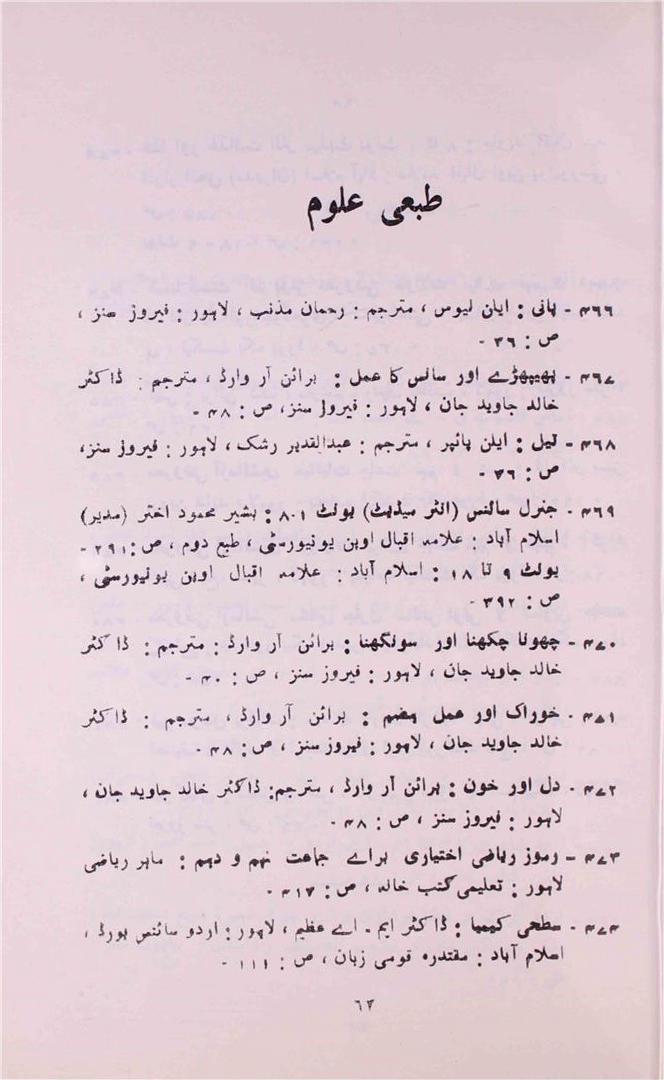 طبعی علوم
۴۶۶ - پانی : ایلن لیوس ، مترجم : رحمان مذنب ، لاہور : فیروز سنز ،
ص : ۳۶ -
۴۶۷ - پھیپھڑے اور سانس کا عمل : برائن آر وارڈ ، مترجم : ڈاکٹر
خالد جاوید جان ، لاہور : فیروز سنز ، ص : ۴۸ -
۴۶۸ - تیل : ایلن پائپر ، مترجم : عبدالقدیر رشک ، لاہور : فیروز سنز ،
ص : ۳۶ -
۴۶۹ - جنرل سائنس (انٹر میڈیٹ) یونٹ ۱-۸ : بشیر محمود اختر (مدیر)
اسلام آباد : علامہ اقبال اوپن یونیورسٹی ، طبع دوم ، ص : ۲۹۱ -
یونٹ ۹ تا ۱۸ : اسلام آباد : علامہ اقبال اوپن یونیورسٹی ،
ص : ۳۹۲ -
۴۷۰ - چھونا چکھنا اور سونگھنا : برائن آر وارڈ : مترجم : ڈاکٹر
خالد جاوید جان ، لاہور : فیروز سنز ، ص : ۴۰ -
۴۷۱ - خوراک اور عمل ہضم : برائن آر وارڈ ، مترجم : ڈاکٹر
خالد جاوید جان ، لاہور : فیروز سنز ، ص : ۴۸ -
۴۷۲ - دل اور خون : برائن آر وارڈ ، مترجم : ڈاکٹر خالد جاوید جان ،
لاہور : فیروز سنز ، ص : ۴۸ -
۴۷۳ - رموز ریاضی اختیاری براے جماعت نہم و دہم : ماہر ریاضی
لاہور : تعلیمی کتب خانہ ، ص : ۴۱۷ -
۴۷۴ - سطحی کیمیا : ڈاکٹر ایم - اے عظیم ، لاہور : اردو سائنس بورڈ ،
اسلام آباد : مقتدرہ قومی زبان ، ص : ۱۱۱ -
۶۳